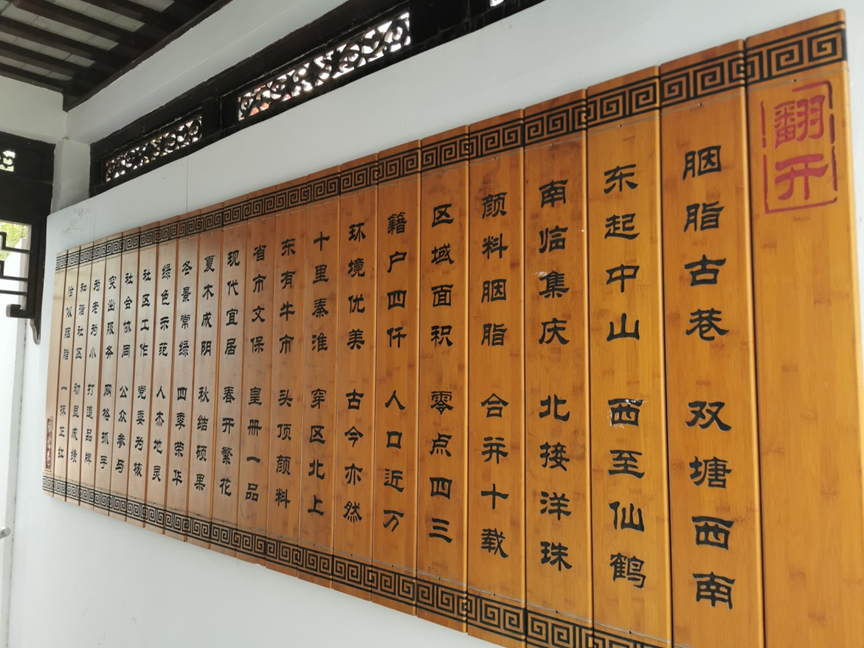 翻开
胭脂古巷 双塘西南
东起中山 西至仙鹤
南临集庆 北接洋珠
颜料胭脂 合并十载
区域面积 零点四三
籍户四仟 人口近万
环境优美 古今亦然
十里秦淮 穿区北上
东有牛市 头顶颜料
省市文保 皇册一品
现代宜居 春开繁花
夏木成阴 秋结硕果
冬景常绿 四季荣华
绿色示范 人杰地灵
社区工作 党委为核
社会协同 公众参与
突出服务 网格抓手
为老为小 打造品牌
和谐社区 初显成绩
恰似胭脂 一抹正红